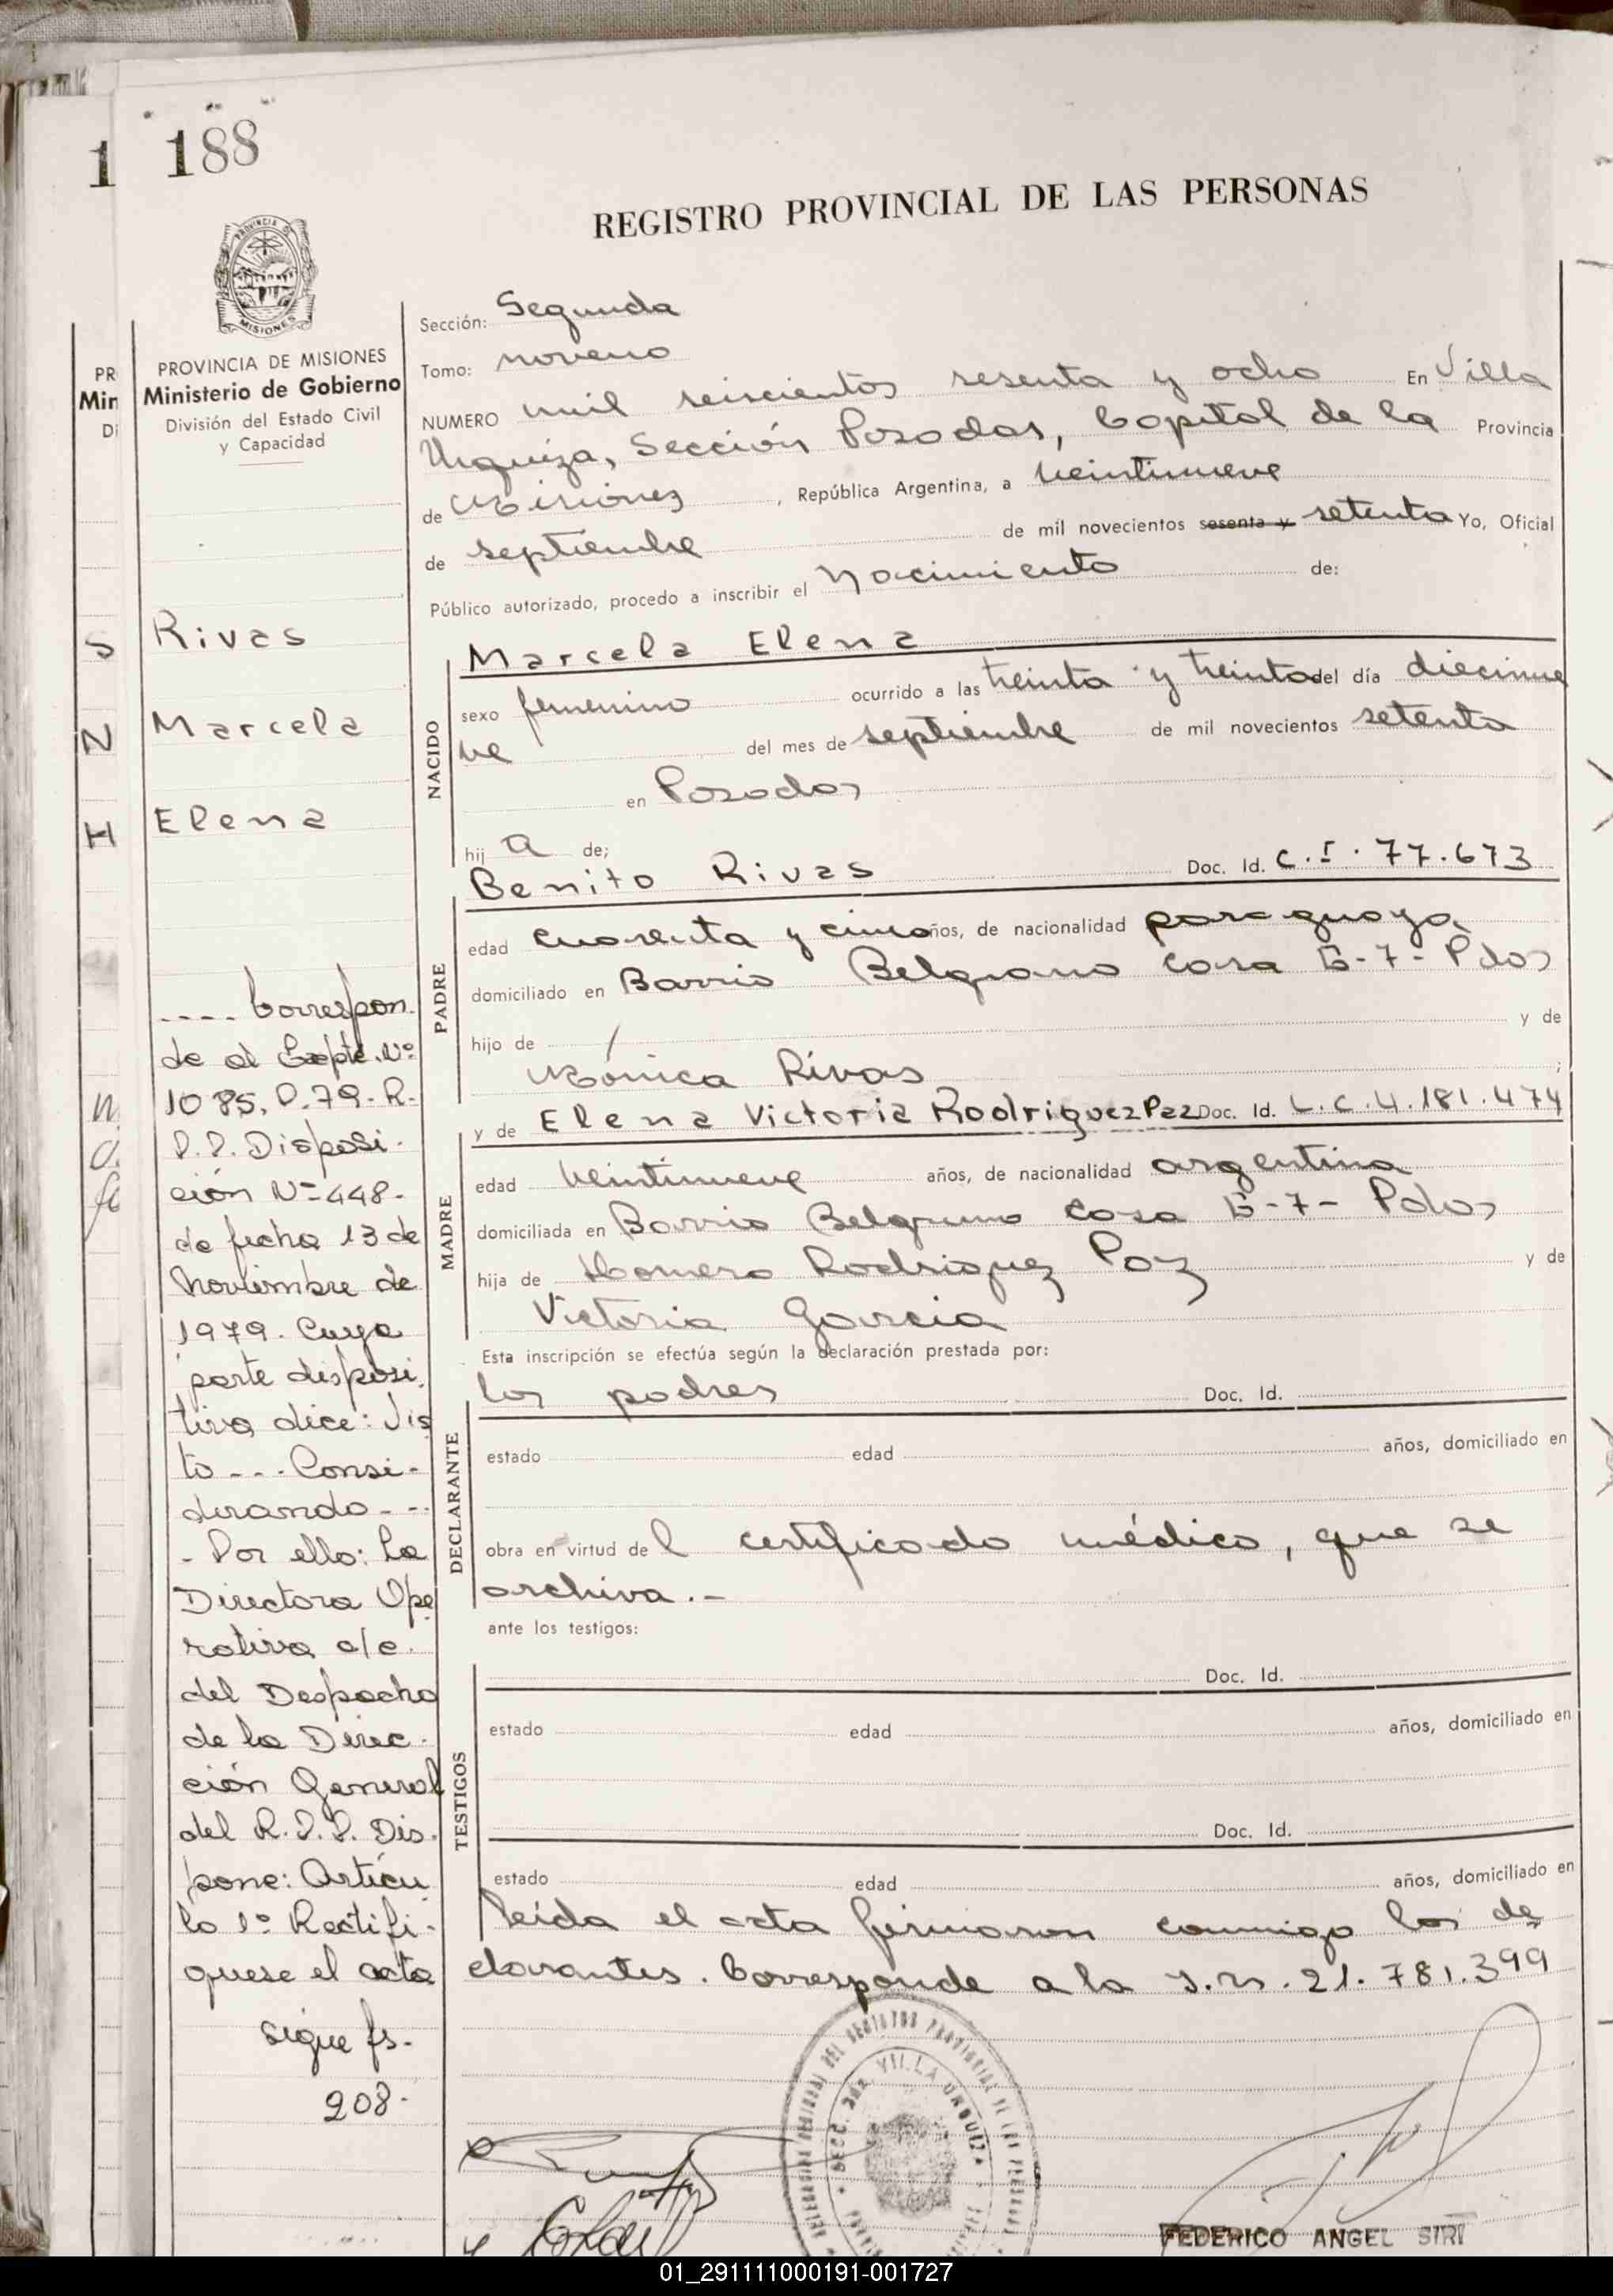 1 188
REGISTRO PROVINCIAL DE LAS PERSONAS
PROVINCIA DE MISIONES
Ministerio de Gobierno
División del Estado Civil
y Capacidad
Rivas
Marcela
Elena
.... Correspon.
de al Expte. Nº
1085. P. 79. R.
P. P. Disposi-
ción Nº 448-
de fecha 13 de
Noviembre de
1979. Cuya
parte disposi.
tiva dice: Vis
to --- Consi-
derando - --
- Por ello: La
Directora Ope
rativa a/c.
del Despacho
de la Direc-
ción General
del R.P.P. Dis-
pone: Artícu
lo 1º Rectifi-
quese el acta
sigue fs.
208.
Sección: Segunda
Tomo: noveno
NUMERO mil seiscientos sesenta y ocho En Villa
Urquiza, Sección Posadas, Capital de la Provincia
de Misiones, República Argentina, a veintinueve
de septiembre de mil novecientos sesenta y setenta Yo, Oficial
Público autorizado, procedo a inscribir el nacimiento de:
NACIDO
Marcela Elena
sexo femenino ocurrido a las treinta y treinta del día diecinue
ve del mes de septiembre de mil novecientos setenta
en Posadas
hij a de;
PADRE
Benito Rivas Doc. Id. C.I. 77.673
edad cuarenta y cinco años, de nacionalidad paraguaya
domiciliado en Barrio Belgrano casa E-7- Pdas
hijo de / y de
Mónica Rivas ;
MADRE
y de Elena Victoria Rodriguez Paz Doc. Id. L.C. 4.181.474
edad veintinueve años, de nacionalidad argentina
domiciliada en Barrio Belgrano casa E-7- Pdas
hija de Homero Rodriguez Paz y de
Victoria Garcia
Esta inscripción se efectúa según la declaración prestada por:
DECLARANTE
los padres Doc. Id.
estado edad años, domiciliado en
obra en virtud del certificado médico, que se
archiva.-
ante los testigos:
TESTIGOS
Doc. Id.
estado edad años, domiciliado en
Doc. Id.
estado edad años, domiciliado en
leída el acta firmaron conmigo los de
clarantes. Corresponde a la I.N. 21.781.399
SECC. 2da. VILLA URQUIZA
FEDERICO ANGEL SIRI
01_291111000191-001727